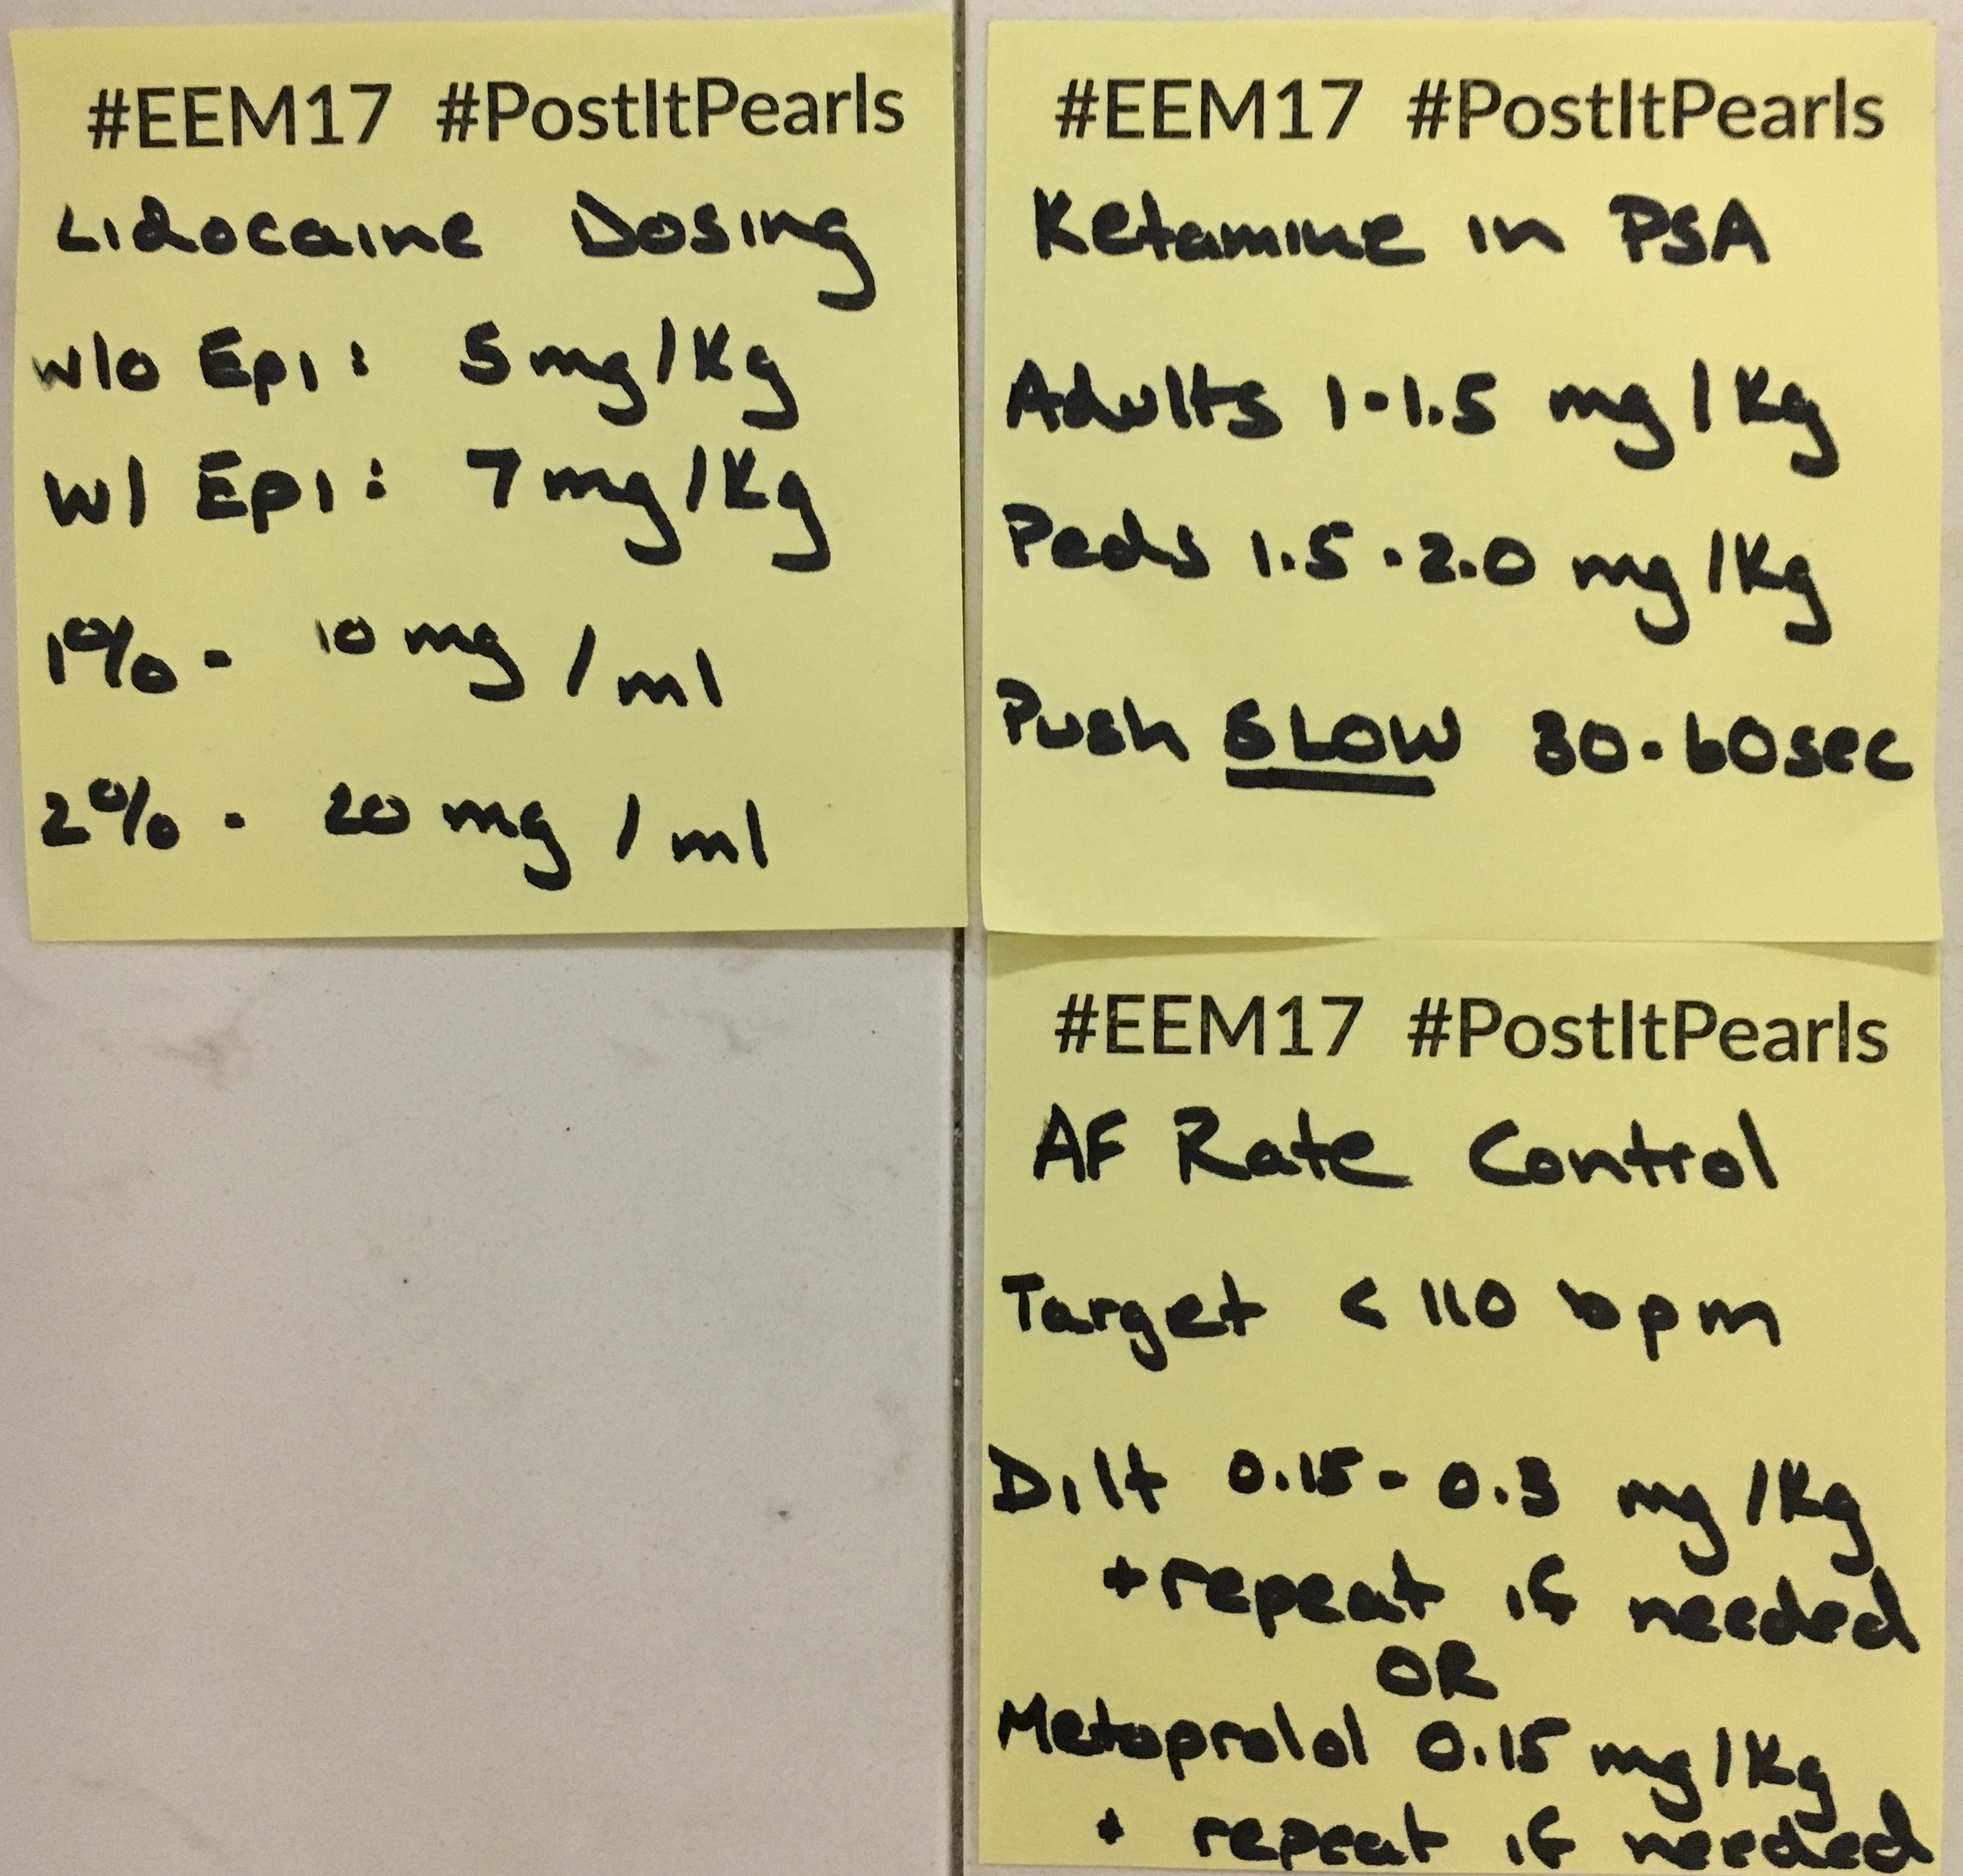 #EEM17 #PostItPearls
Lidocaine Dosing
w/o Epi: 5mg/Kg
w/ Epi: 7mg/Kg
1% - 10 mg/ml
2% - 20 mg/ml
#EEM17 #PostItPearls
Ketamine in PSA
Adults 1-1.5 mg/Kg
Peds 1.5-2.0 mg/Kg
Push SLOW 30-60sec
#EEM17 #PostItPearls
AF Rate Control
Target < 110 bpm
Dilt 0.15-0.3 mg/Kg
+repeat if needed
OR
Metoprolol 0.15 mg/Kg
+ repeat if needed